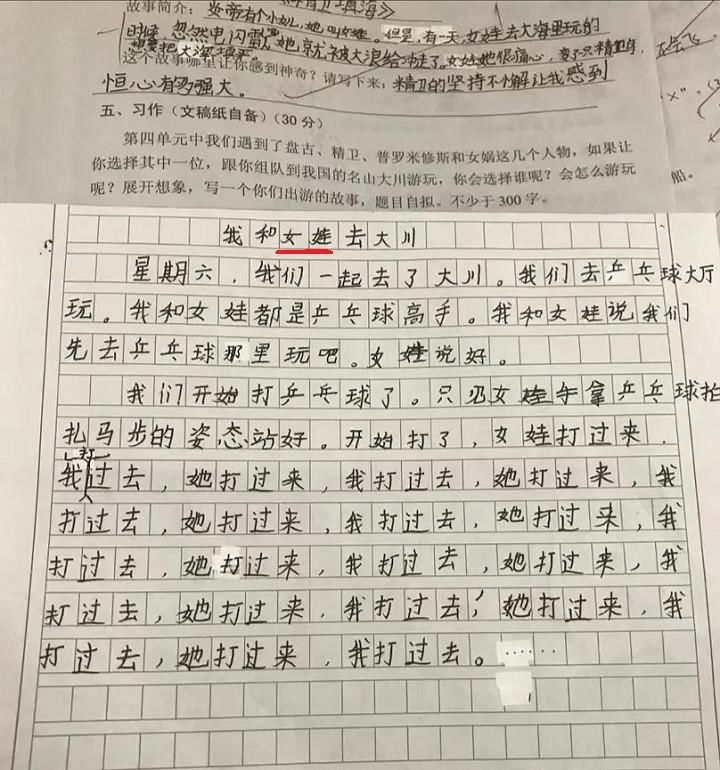 故事简介：炎帝有个小女儿，她叫女娃。但是，有一天，女娃去大海里玩的
时候，忽然电闪雷 她就被大浪给冲走了。女娃她很痛心，变了只精卫鸟，
想要把大海填平。
这个故事哪里让你感到神奇？请写下来：精卫的坚持不懈让我感到
恒心有多强大。
五、习作（文稿纸自备）(30分)
第四单元中我们遇到了盘古、精卫、普罗米修斯和女娲这几个人物，如果让
你选择其中一位，跟你组队到我国的名山大川游玩，你会选择谁呢？会怎么游玩
呢？展开想象，写一个你们出游的故事，题目自拟。不少于300字。
船。
我和女娃去大川
星期六，我们一起去了大川。我们去乒乓球大厅
玩。我和女娃都是乒乓球高手。我和女娃说我们
先去乒乓球那里玩吧。女娃说好。
我们开始打乒乓球了。只见女娃手拿乒乓球拍
扎马步的姿态站好。开始打了，女娃打过来，
我打过去，她打过来，我打过去，她打过来，我
打过去，她打过来，我打过去，她打过来，我
打过去，她打过来，我打过去，她打过来，我
打过去，她打过来，我打过去，她打过来，我
打过去，她打过来，我打过去。……